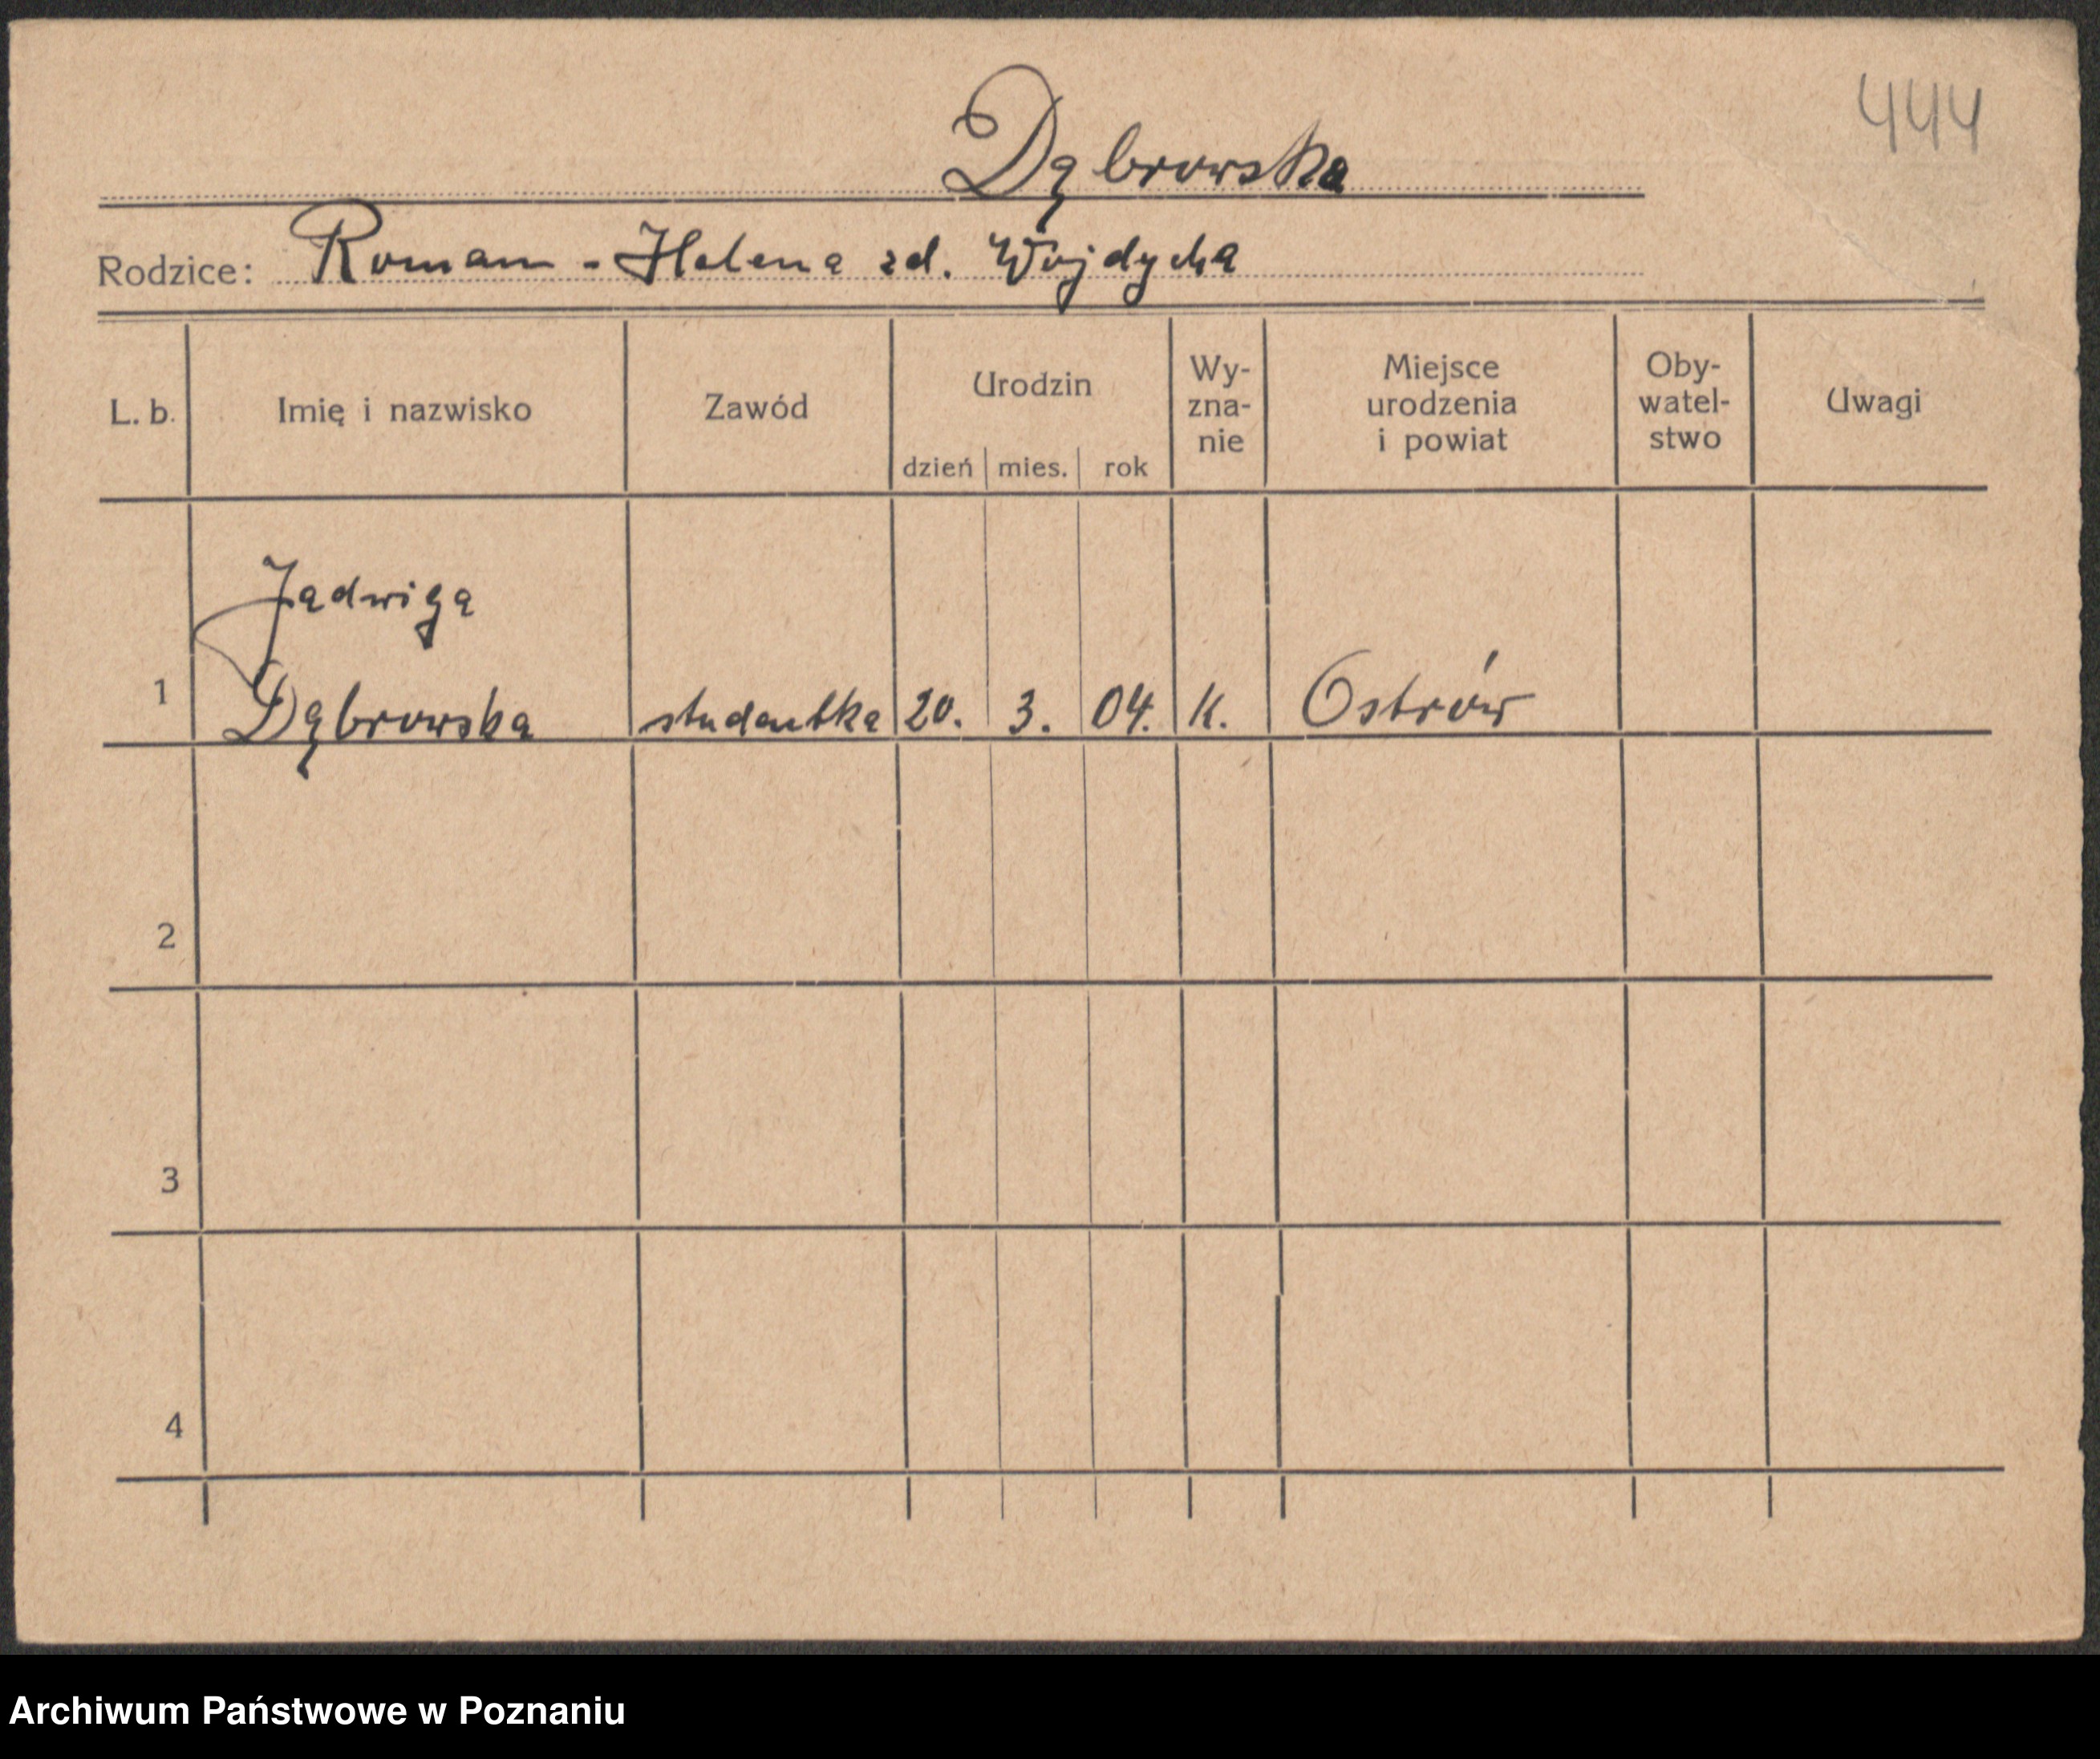 444
Dąbrowska
Rodzice: Roman - Helena zd. Wojdycka
L. b. Imię i nazwisko Zawód Urodzin dzień mies. rok Wy-zna-nie Miejsce urodzenia i powiat Oby-watel-stwo Uwagi
Jadwiga
1 Dąbrowska studentka 20. 3. 04. K. Ostrów
2
3
4
Archiwum Państwowe w Poznaniu